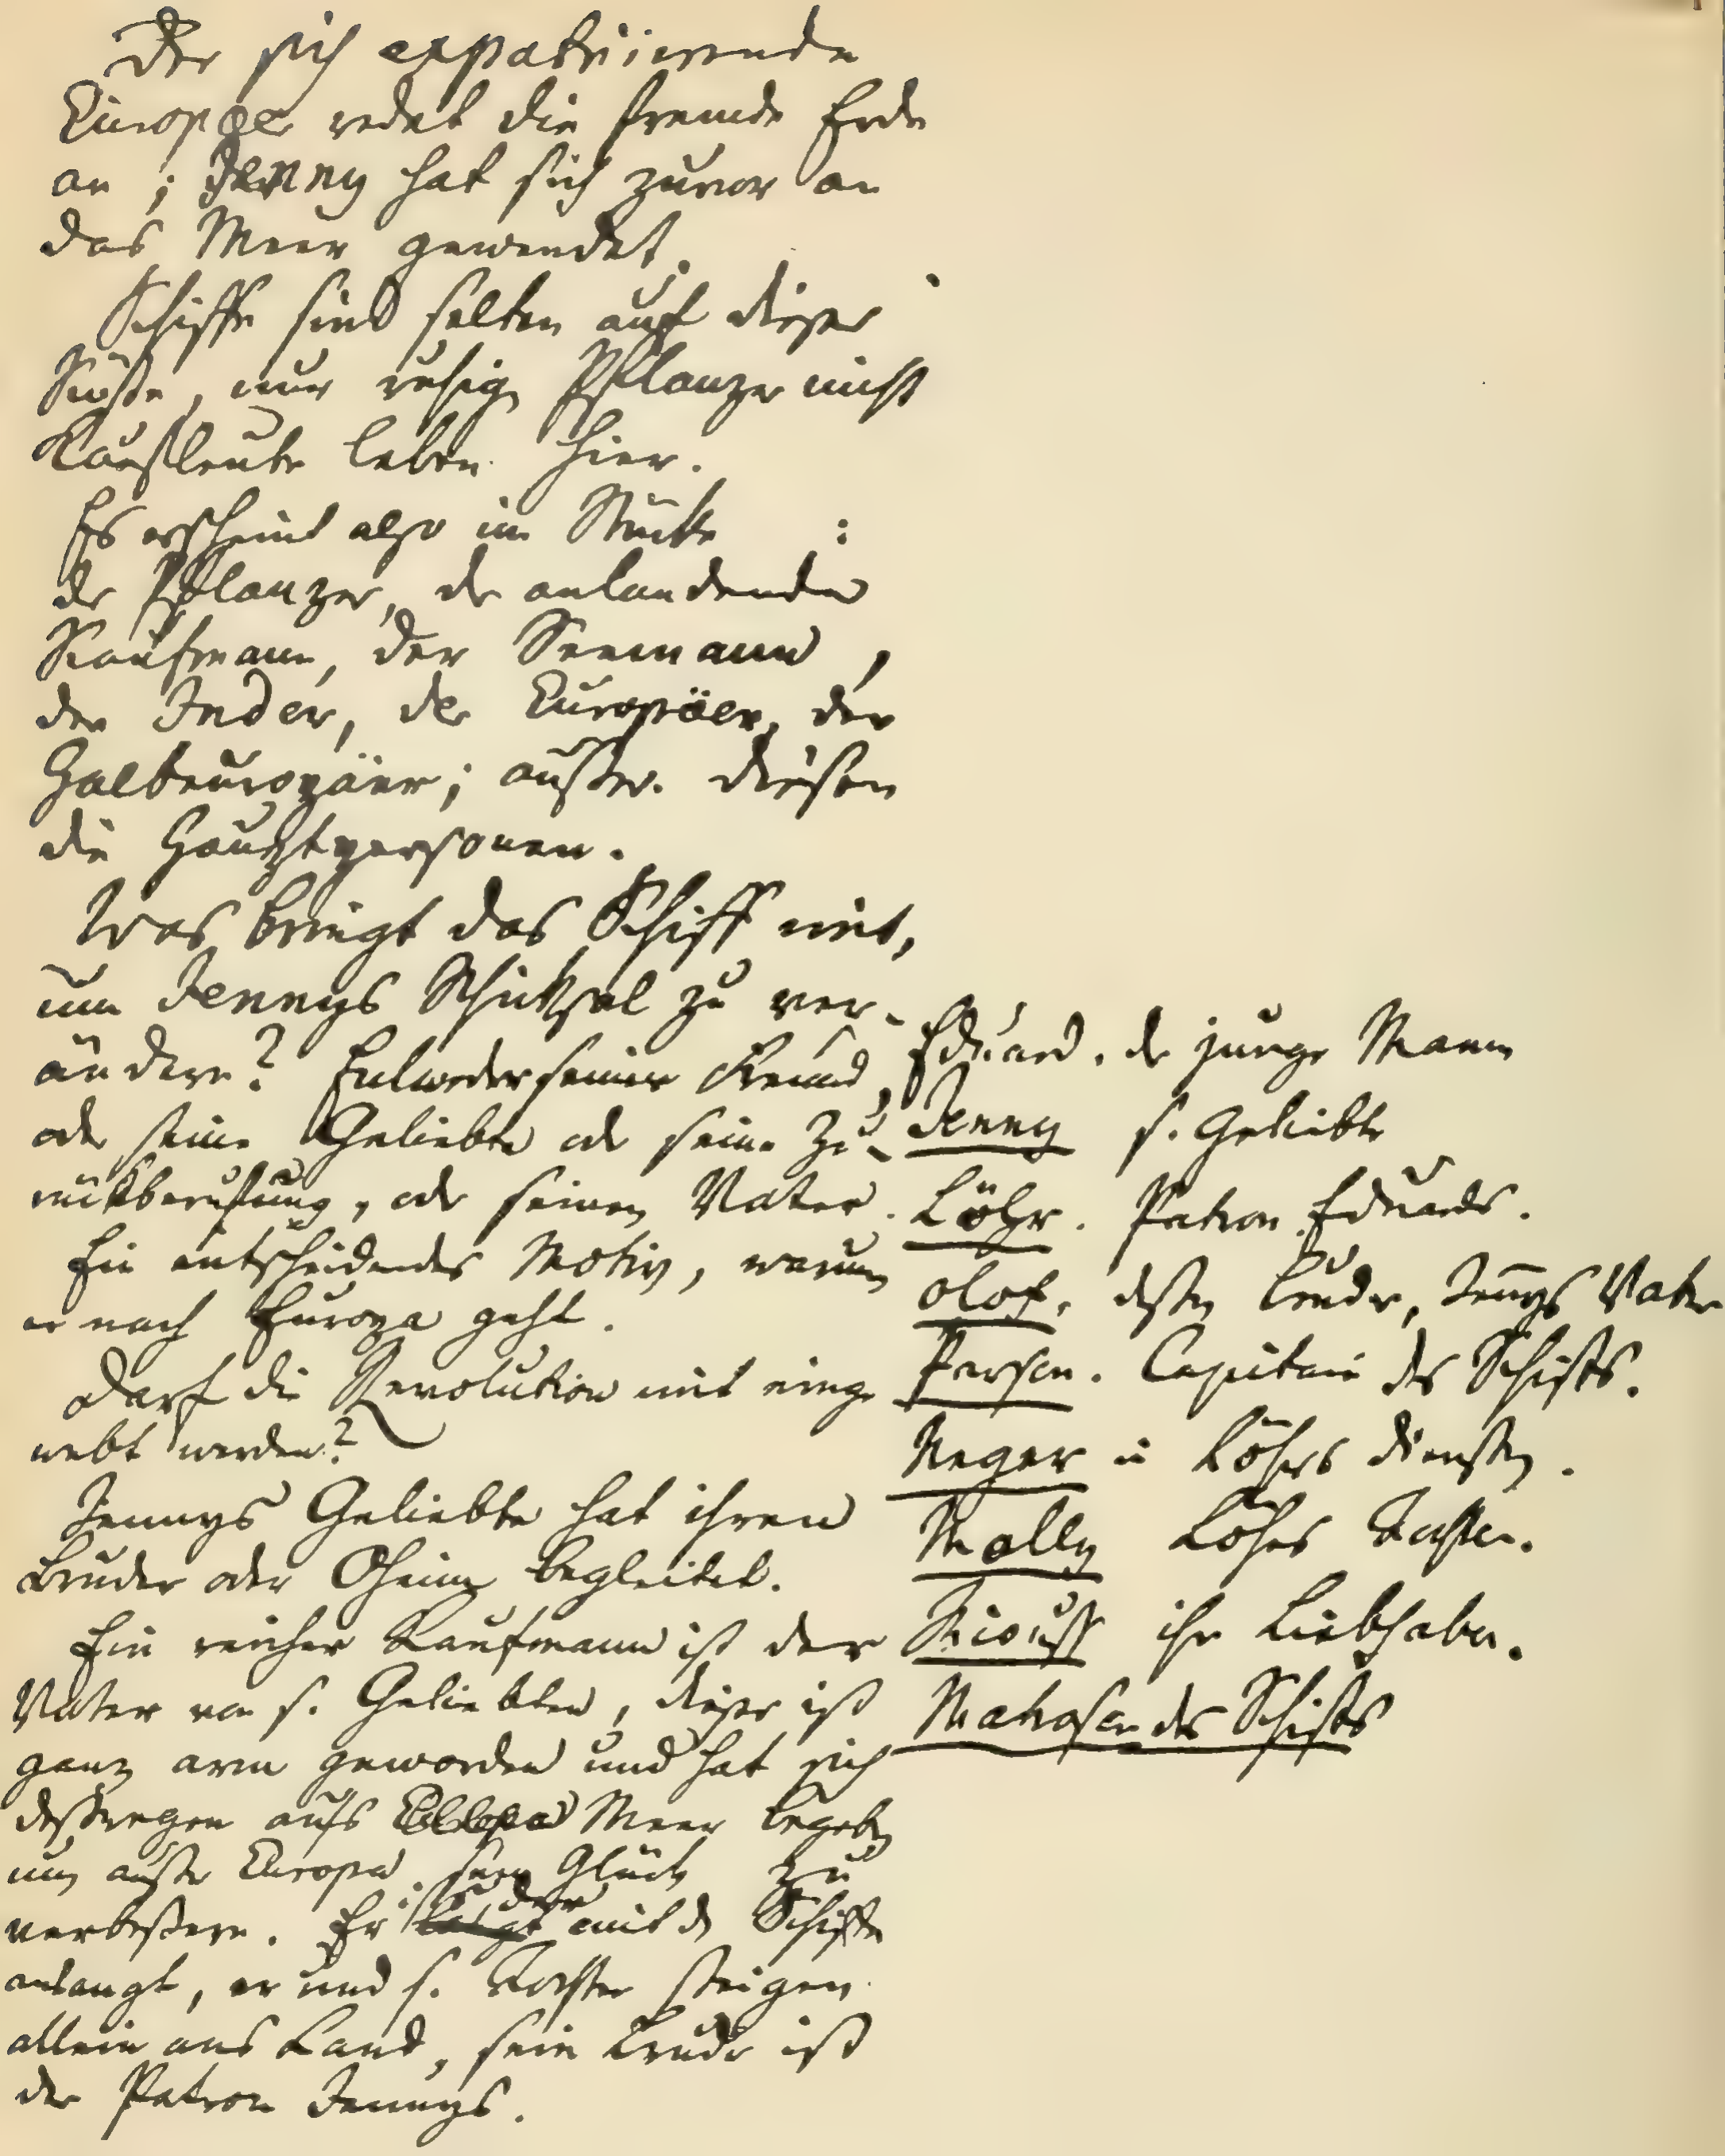 Der sich expatriierende
Europäer redet die fremde Erde
an; Jenny hat sich zuvor an
das Meer gewendet.
Schiffe sind selten auf dieser
Küste, nur ruhige Pflanzer nicht
Kaufleute leben hier.
Es erscheint also im Stücke :
der Pflanzer, der anlandende
Kaufmann, der Seemann,
der Inder, der Europäer, der
Halbeuropäer; außer diesen
die Hauptpersonen.
Was bringt das Schiff mit,
um Jennys Schicksal zu ver-
ändern? Entweder seinen Freund,
oder seine Geliebte oder seine Zu-
rückberufung, oder seinen Vater.
Ein entscheidendes Motiv, warum
er nach Europa geht.
Darf die Revolution mit einge
webt werden?
Jennys Geliebte hat ihren
Bruder oder Oheim begleitet.
Ein reicher Kaufmann ist der
Vater von s. Geliebten, dieser ist
ganz arm geworden und hat sich
deßwegen aufs Meer begeben
um außer Europa sein Glück zu
verbeßern. Er mit der Schiffe
anlangt, er und s. Tochter steigen
allein ans Land, sein Bruder ist
der Patron Jennys.
Eduard. der junge Mann
Jenny s. Geliebte
Löhr. Patron Eduards.
Olof. deßen Bruder, Jenys Vater
Person. Capitain des Schiffs.
Neger in Löhrs Diensten.
Molly Löhrs Tochter.
ihr Liebhaber.
Matrosen des Schiffs